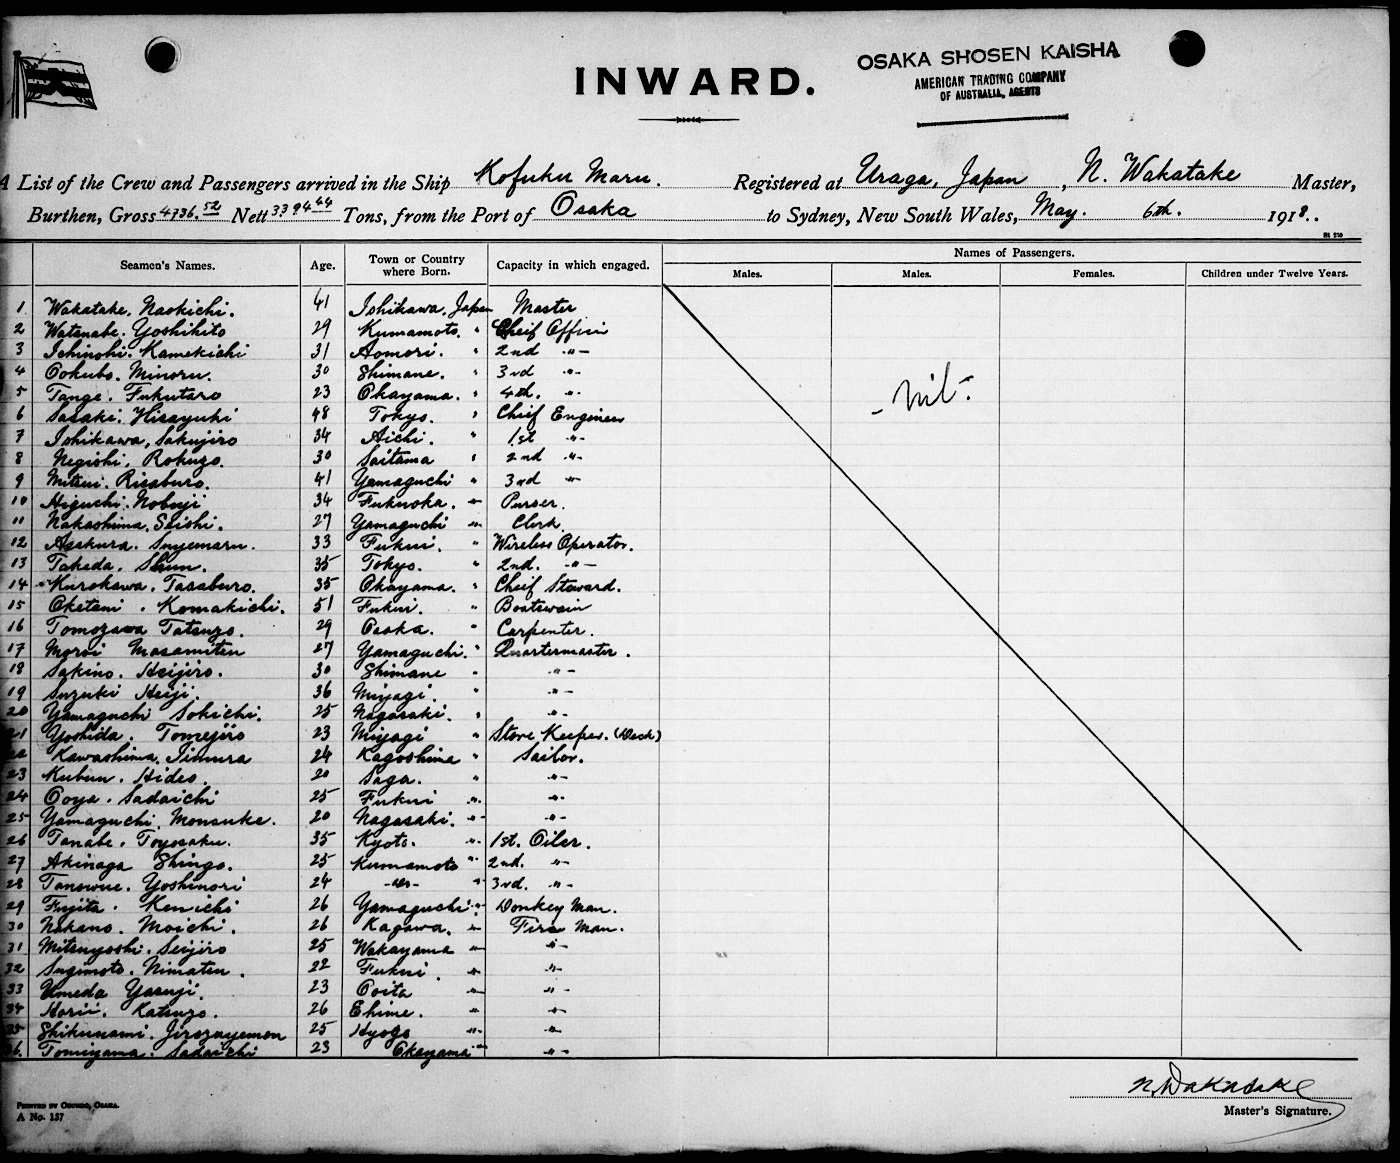 OSAKA SHOSEN KAISHA
AMERICAN TRADING COMPANY
OF AUSTRALIA, AGENTS
INWARD.
A List of the Crew and Passengers arrived in the Ship Kofuku Maru. Registered at Uraga, Japan, N. Wakatake Master,
Burthen, Gross 4736.52 Nett 3394.44 Tons, from the Port of Osaka to Sydney, New South Wales, May. 6th. 1918..
Seamen's Names. Age. Town or Country where Born. Capacity in which engaged. Names of Passengers.
Males. Males. Females. Children under Twelve Years.
1 Wakatake. Naokichi. 41 Ishikawa, Japan Master
2 Watanabe. Yoshihito 29 Kumamoto. " Cheif Officer
3 Ichinohi. Kamekichi 31 Aomori. " 2nd -"-
4 Ookubo. Minoru. 30 Shimane. " 3rd -"-
5 Tange. Fukutaro 23 Okayama. " 4th. -"-
6 Sasaki. Hisayuki 48 Tokyo. " Chief Engineer
7 Ishikawa, Sakujiro 34 Aichi. " 1st -"-
8 Negishi. Rokuzo. 30 Saitama " 2nd -"-
9 Mitsui. Risaburo. 41 Yamaguchi " 3rd "-
10 Higuchi. Nobuji 34 Fukuoka. -"- Purser.
11 Nakashima. Seishi. 27 Yamaguchi -"- Clerk
12 Asakura. Suyemaru. 33 Fukui. " Wireless Operator.
13 Takeda. Shun. 35 Tokyo. " 2nd. -"-
14 Kurokawa. Tasaburo. 35 Okayama. " Cheif Steward.
15 Oketani. Komakichi. 51 Fukui. " Boatswain
16 Tomozawa Tatsuzo. 29 Osaka. " Carpenter.
17 Moroi Masamitsu 27 Yamaguchi. " Quartermaster.
18 Sakino. Heijiro. 30 Shimane " -"-
19 Suzuki Heiji. 36 Miyagi. " -"-
20 Yamaguchi Sokichi. 25 Nagasaki. " -"-
21 Yoshida. Tomejiro 23 Miyagi " Store Keeper. (Deck)
22 Kawashima. Jinnura 24 Kagoshima " Sailor.
23 Kubun. Hideo. 20 Saga. " -"-
24 Ooya. Sadaichi 25 Fukui -"- -"-
25 Yamaguchi. Monsuke. 20 Nagasaki. -"- -"-
26 Tanabe. Toyosaku. 35 Kyoto. -"- 1st. Oiler.
27 Akinaga Shingo. 25 Kumamoto "- 2nd. "-
28 Tanowue. Yoshinori 24 -do- "- 3rd. "-
29 Fujita. Kenichi 26 Yamaguchi. "- Donkey Man.
30 Nakano. Moichi. 26 Kagawa. "- Fire Man.
31 Mitsuyoshi. Seijiro 25 Wakayama -"- -"-
32 Sugimoto. Nimatsu. 22 Fukui. -"- -"-
33 Umeda Yasuji. 23 Ooita -"- -"-
34 Horii. Katsuzo. 26 Ehime. " -"-
35 Shikunami. Jirozayemon 25 Hyogo -"- -"-
36. Tomiyama. Sadaichi 23 Okayama -"- -"-
- Nil -
N. Wakatake
Master's Signature.
A No. 157